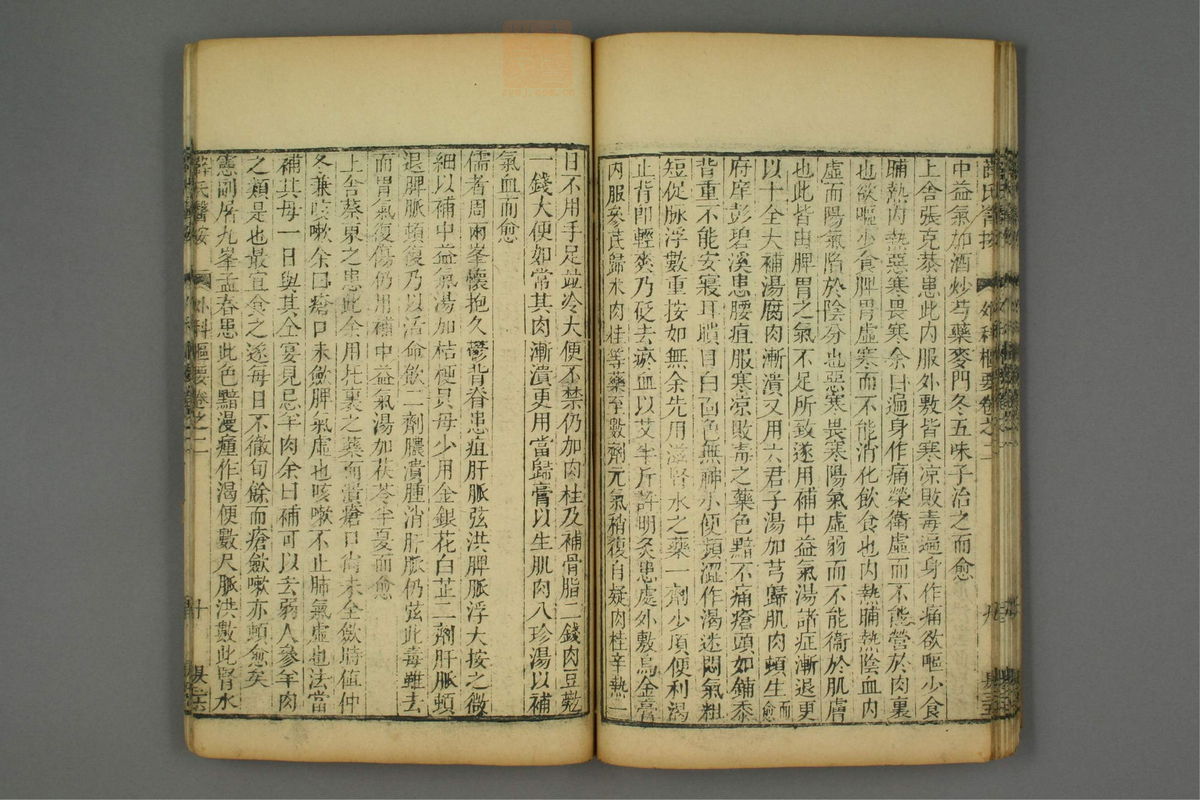 薛氏醫按 外科樞要卷之二 九
中益氣加酒炒芍藥麥門冬五味子治之而愈
上舍張克恭患此內服外敷皆寒凉敗毒遍身作痛欲嘔少食
晡熱內熱惡寒畏寒余曰遍身作痛榮衛虛而不能營於肉裏
也欲嘔少食脾胃虛寒而不能消化飲食也內熱晡熱陰血內
虛而陽氣陷於陰分也惡寒畏寒陽氣虛弱而不能衞於肌膚
也此皆由脾胃之氣不足所致遂用補中益氣湯諸症漸退更
以十全大補湯腐肉漸潰又用六君子湯加芎歸肌肉頓生而愈
府庠彭碧溪患腰疽服寒凉敗毒之藥色黯不痛瘡頭如鋪黍
背重不能安寢耳聵目白面色無神小便頻澀作渴迷悶氣粗
短促脉浮數重按如無余先用滋腎水之藥一劑少頃便利渴
止背即輕爽乃砭去瘀血以艾半斤許明灸患處外敷烏金膏
內服參芪歸朮肉桂等藥至數劑元氣稍復自疑肉桂辛熱一
日不用手足竝冷大便不禁仍加肉桂及補骨脂二錢肉豆蔲
一錢大便如常其肉漸潰更用當歸膏以生肌肉八珍湯以補
氣血而愈
儒者周兩峯懷抱久鬱背脊患疽肝脈弦洪脾脈浮大按之微
細以補中益氣湯加桔梗貝母少用金銀花白芷二劑肝脈頓
退脾脈頓復乃以活命飲二劑膿潰腫消肝脈仍弦此毒雖去
而胃氣復傷仍用補中益氣湯加茯苓半夏而愈
上舍蔡東之患此余用托裏之藥而潰瘡口尚未全歛時值仲
冬兼咳嗽余曰瘡口未歛脾氣虛也咳嗽不止肺氣虛也法當
補其母一日與其仝宴見忌羊肉余曰補可以去弱人參羊肉
之類是也最宜食之遂每日不徹旬餘而瘡歛嗽亦頓愈矣
憲副屠九峯孟春患此色黯漫腫作渴便數尺脈洪數此腎水
薛氏醫按 外科樞要卷之二 十